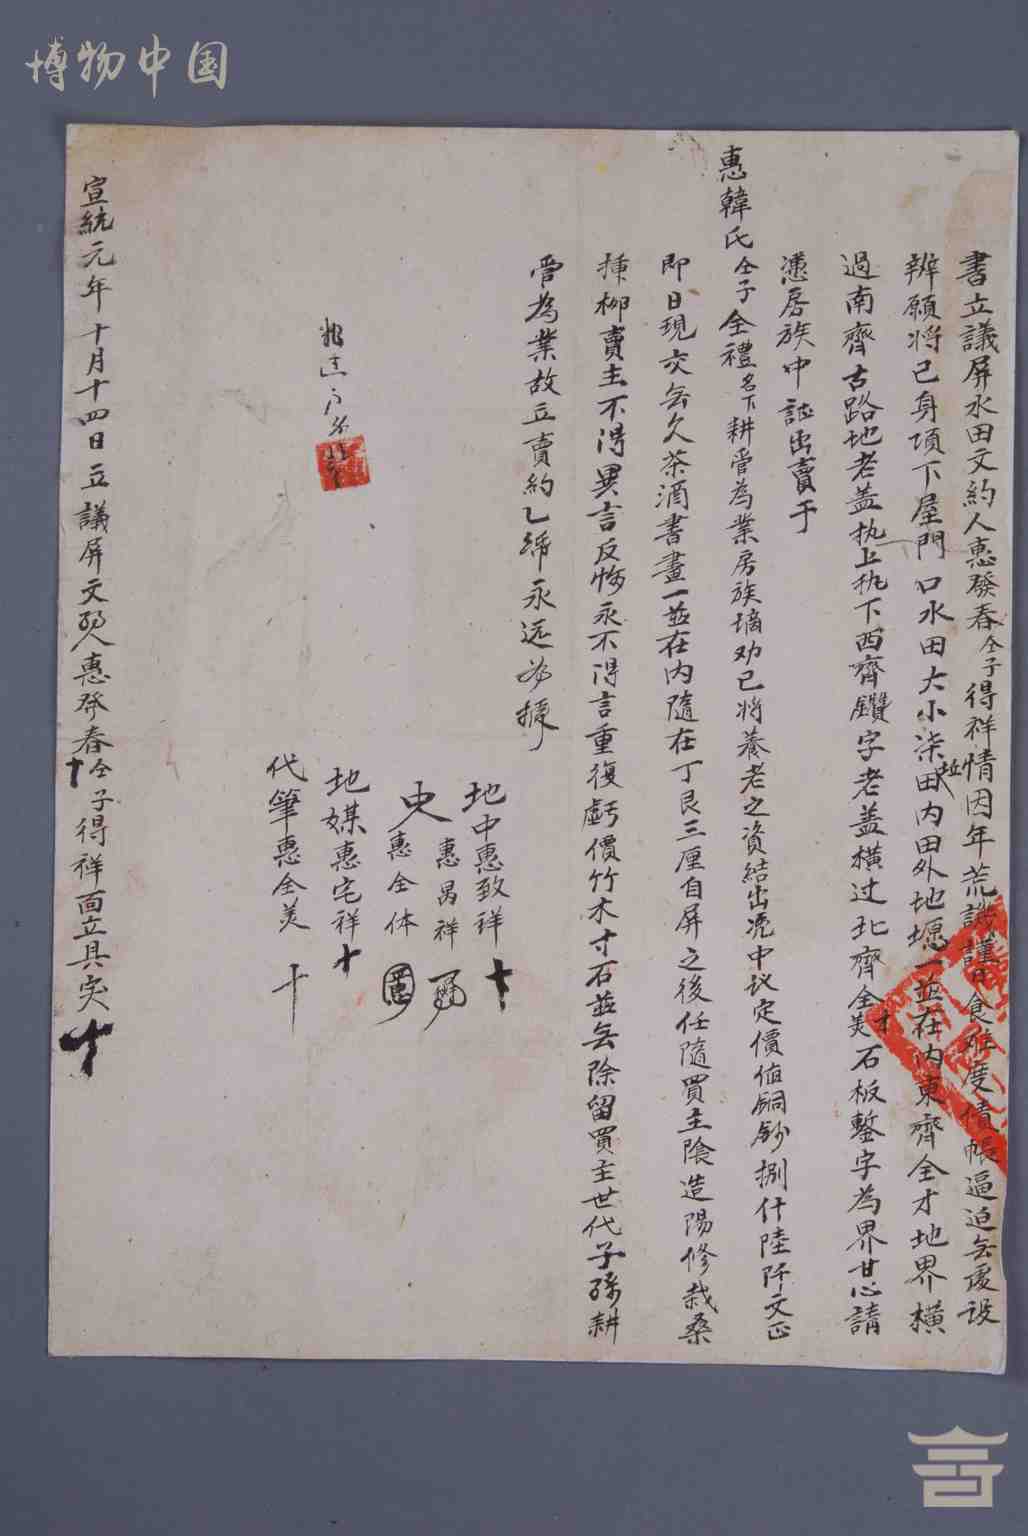 博物中国
書立議屏水田文約人惠發春仝子得祥情因年荒譏謹日食难度債帳逼迫無處设
辦願将已身項下屋門口水田大小柒坵田内田外地塄一並在内東齊全才地界横
過南齊古路地老盖执上执下西齊鑽字老盖横过北齊全才美石板鏨字為界甘心請
憑房族中証出賣于
惠韓氏仝子全禮名下耕管為業房族墒劝已将養老之資結出凭中议定價值銅鈔捌仟陸阡文正
即日現交無欠茶酒書畫一並在内隨在丁艮三厘自屏之後任隨買主陰造陽修栽桑
揷柳賣主不得異言反悔永不得言重復虧價竹木寸石並無除留買主世代子孫耕
管為業故立賣約乙纸永远为據
地中惠致祥十
惠昌祥
史惠全体
地媒惠宅祥十
代筆惠全美十
宣統元年十月十四日立議屏文约人惠發春仝子得祥面立具实十